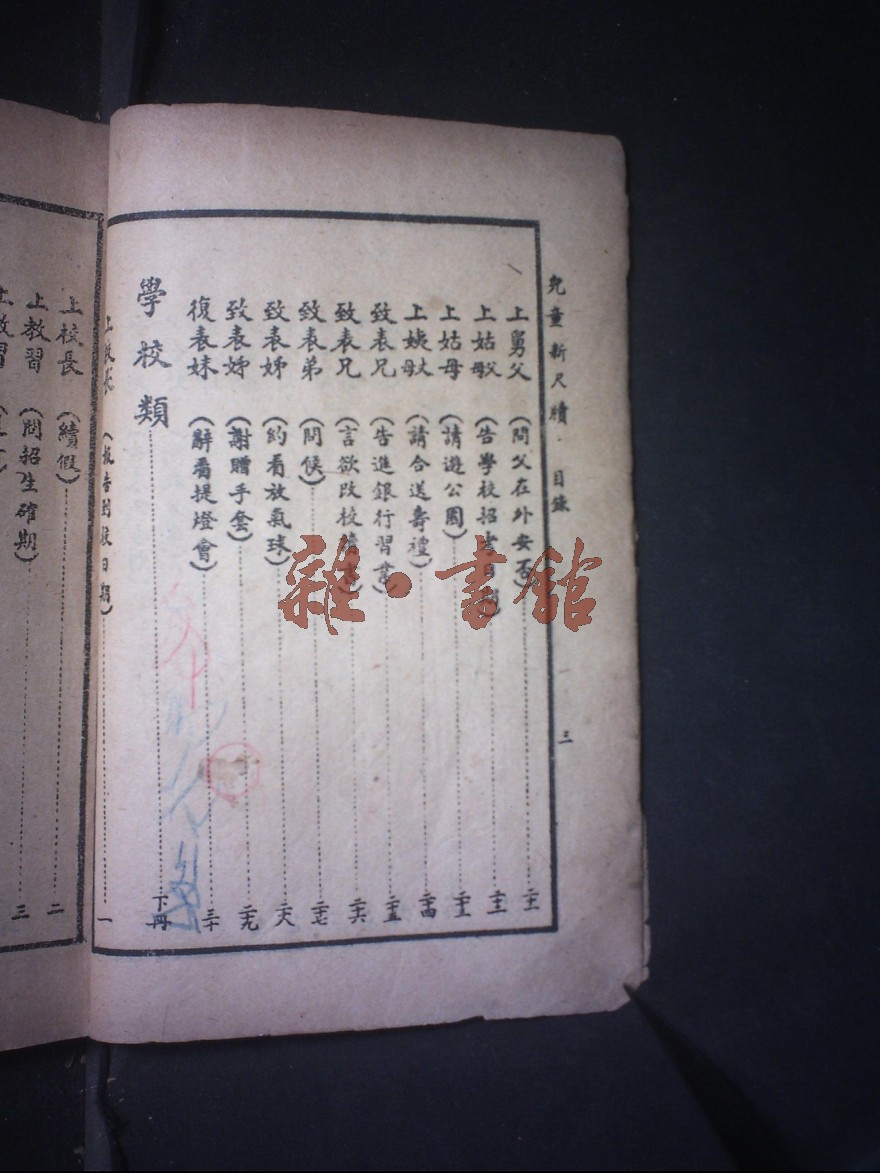 兒童新尺牘 目錄 三
上舅父（問父在外安否）二十二
上姑父（告學校招生日期）二十三
上姑母（請遊公園）二十三
上姨丈母（請合送壽禮）二十四
致表兄（告進銀行習業）二十五
致表兄（言欲改校）二十六
致表弟（問候）二十七
致表姊（約看放氣球）二十八
致表姊（謝贈手套）二十九
復表妹（辭看提燈會）三十
學校類 下冊
上校長（報告到校日期）一
上校長（續假）二
上教習（問招生確期）三
上教習
雜·書館